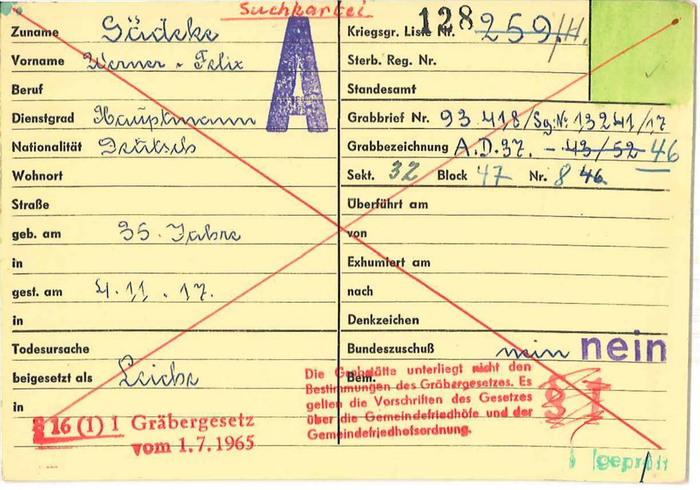 Suchkartei
Zuname Gädeke
Vorname Werner - Felix
Beruf
Dienstgrad Hauptmann
Nationalität Deutsch
Wohnort
Straße
geb. am 35. Jahre
in
gest. am 4.11.17.
in
Todesursache
beigesetzt als Leiche
in
§ 16 (1) 1 Gräbergesetz
vom 1.7.1965
A
Kriegsgr. Liste Nr. 128 259/H.
Sterb. Reg. Nr.
Standesamt
Grabbrief Nr. 93 418/Sg.Nr. 13241/17
Grabbezeichnung A.D.37. - 43/52 - 46
Sekt. 32 Block 47 Nr. 8 46
Überführt am
von
Exhumiert am
nach
Denkzeichen
Bundeszuschuß nein nein
Bem.
Die Grabstätte unterliegt nicht den
Bestimmungen des Gräbergesetzes. Es
gelten die Vorschriften des Gesetzes
über die Gemeindefriedhöfe und der
Gemeindefriedhofsordnung.
§ 1
geprüft